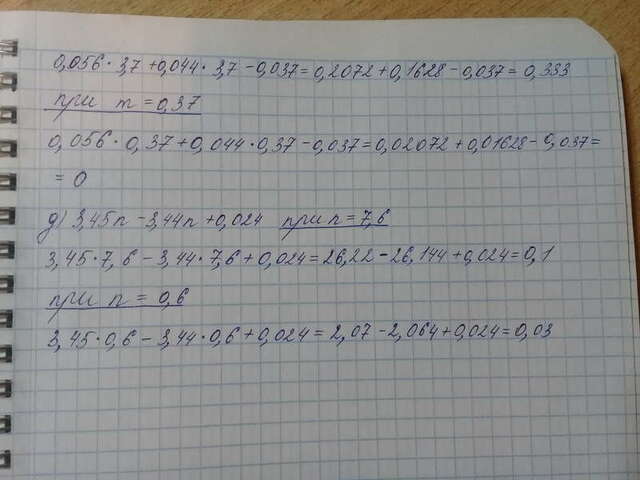 0,056·3,7+0,044·3,7-0,037=0,2072+0,1628-0,037=0,333
при m=0,37
0,056·0,37+0,044·0,37-0,037=0,02072+0,01628-0,037=
=0
д) 3,45n-3,44n+0,024 при n=7,6
3,45·7,6-3,44·7,6+0,024=26,22-26,144+0,024=0,1
при n=0,6
3,45·0,6-3,44·0,6+0,024=2,07-2,064+0,024=0,03